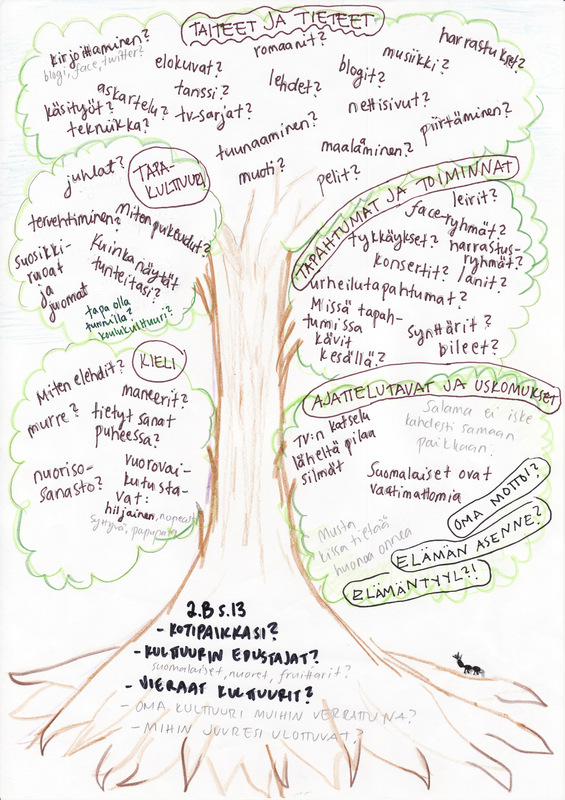 TAITEET JA TIETEET
kirjoittaminen?
blogi, face, twitter?
elokuvat?
romaanit?
musiikki?
harrastukset?
askartelu?
tanssi?
lehdet?
blogit?
käsityöt?
tekniikka?
tv-sarjat?
nettisivut?
piirtäminen?
tuunaaminen?
maalaaminen?
muoti?
pelit?
TAPA-
KULTTUURI
juhlat?
tervehtiminen?
Miten pukeudut?
suosikki-
ruoat
ja
juomat
Kuinka näytät
tunteitasi?
tapa olla
tunnilla?
koulukulttuuri?
TAPAHTUMAT JA TOIMINNAT
leirit?
face-ryhmät?
tykkäykset?
harrastus-
ryhmät?
konsertit?
lanit?
urheilutapahtumat?
Missä tapah-
tumissa
kävit
kesällä?
synttärit?
bileet?
KIELI
Miten elehdit?
maneerit?
murre?
tietyt sanat
puheessa?
nuoriso-
sanasto?
vuorovai-
kutusta-
vat:
hiljainen, nopeasti
syttyvä, papupata
AJATTELUTAVAT JA USKOMUKSET
TV:n katselu
läheltä pilaa
silmät
Salama ei iske
kahdesti samaan
paikkaan.
Suomalaiset ovat
vaatimattomia
Musta
kissa tietää
huonoa onnea
OMA MOTTO!?
ELÄMÄN ASENNE?
ELÄMÄNTYYLI?!
2.B s.13
- KOTIPAIKKASI?
- KULTTUURIN EDUSTAJAT?
suomalaiset, nuoret, fruittarit?
- VIERAAT KULTTUURIT?
- OMA KULTTUURI MUIHIN VERRATTUNA?
- MIHIN JUURESI ULOTTUVAT?